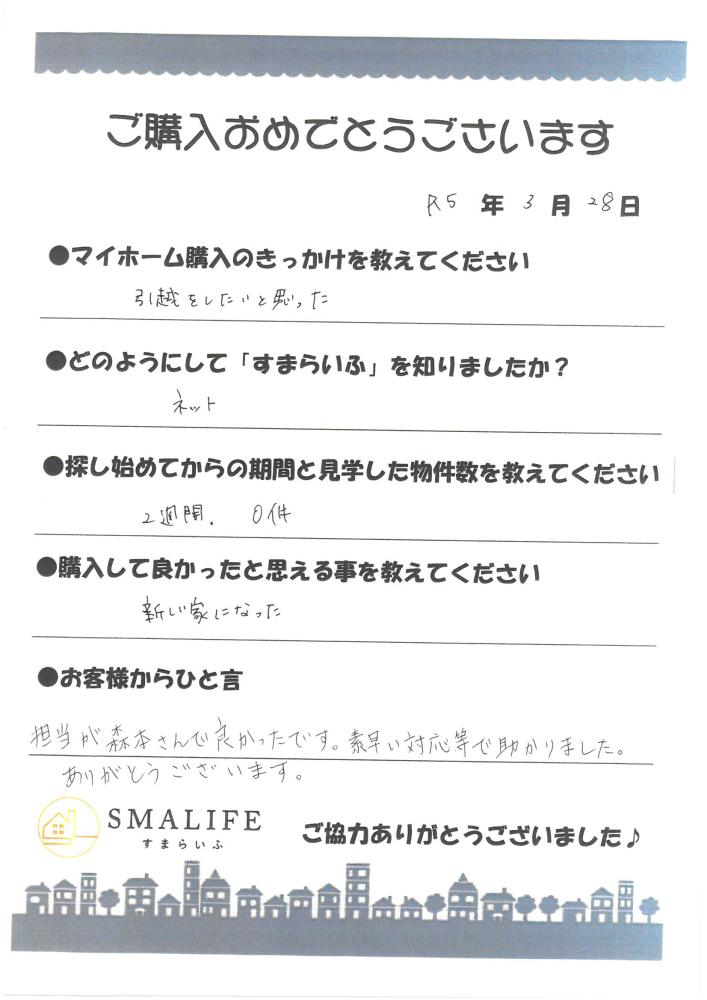 ご購入おめでとうございます
R5 年 3 月 28 日
●マイホーム購入のきっかけを教えてください
引越をしたいと思った
●どのようにして「すまらいふ」を知りましたか？
ネット
●探し始めてからの期間と見学した物件数を教えてください
2週間. 0件
●購入して良かったと思える事を教えてください
新しい家になった
●お客様からひと言
担当が森本さんで良かったです。素早い対応等で助かりました。
ありがとうございます。
SMALIFE
すまらいふ
ご協力ありがとうございました♪